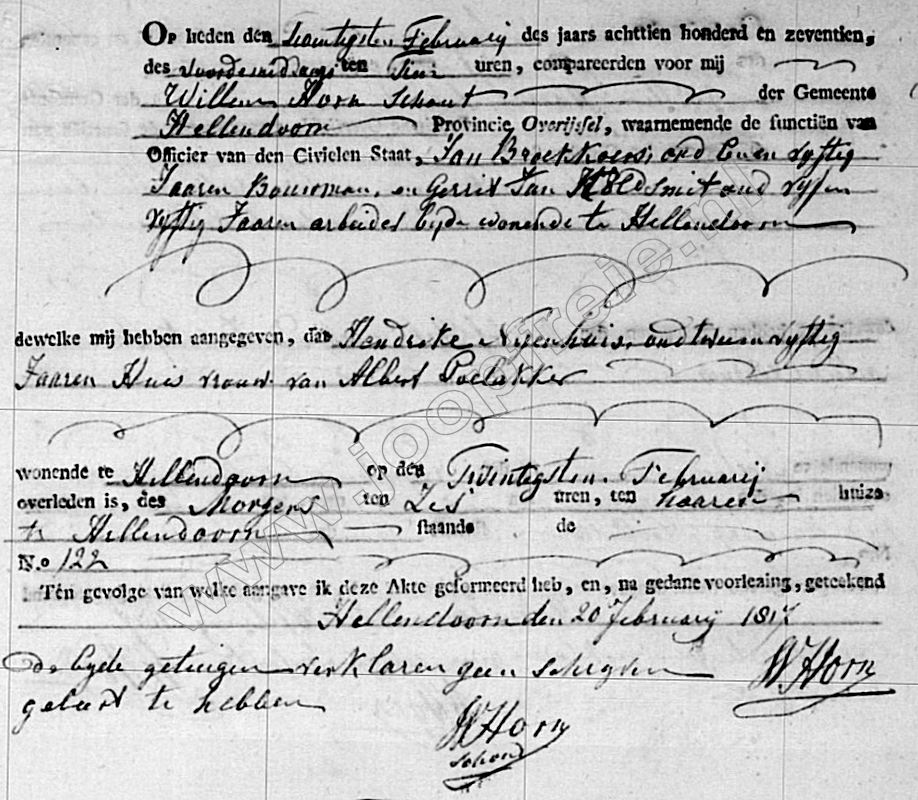 Op heden den twintigsten Februarij des jaars achttien honderd en zeventien,
des voordemiddags ten Tien uren, compareerden voor mij
Willem Horn Schout der Gemeente
Hellendoorn Provincie Overijssel, waarnemende de functiën van
Officier van den Civielen Staat, Jan oud vyftig
Jaaren Bouwman, en Gerrit Jan oud vyf en
vyftig Jaaren arbeider byde wonende te Hellendoorn
dewelke mij hebben aangegeven, dat Hendrike Nijenhuis, oud twee en vyftig
Jaaren Huis vrouw van Albert Poelakker
wonende te Hellendoorn op den Twintigsten Februarij
overleden is, des Morgens ten Zes uren, ten haaren huize
te Hellendoorn staande de
N.o 122
Ten gevolge van welke aangave ik deze Akte geformeerd heb, en, na gedane voorlezing, geteekend
Hellendoorn den 20 Februarij 1817
de byde getuigen verklaren geen schryven WHorn
geleert te hebben
WHorn
schout
www.joopfreje.nl